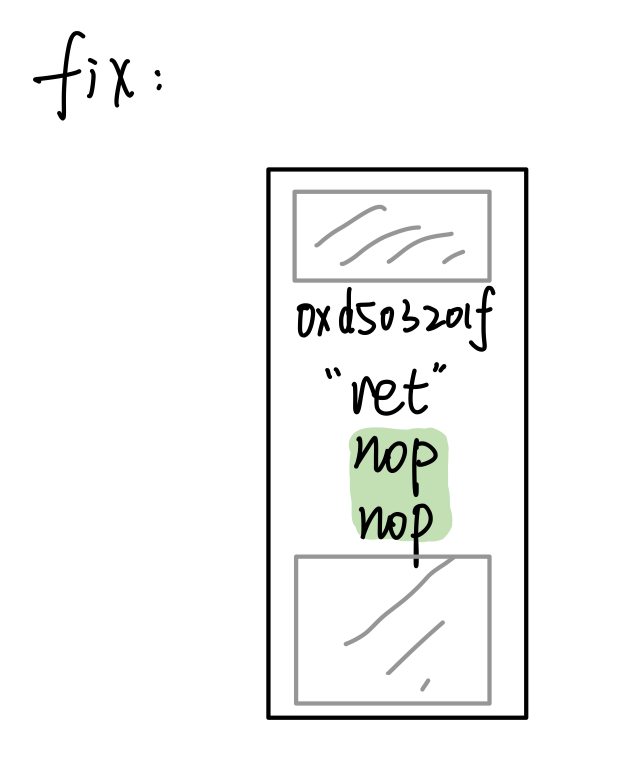 fix:
0xd503201f
"ret"
nop
nop